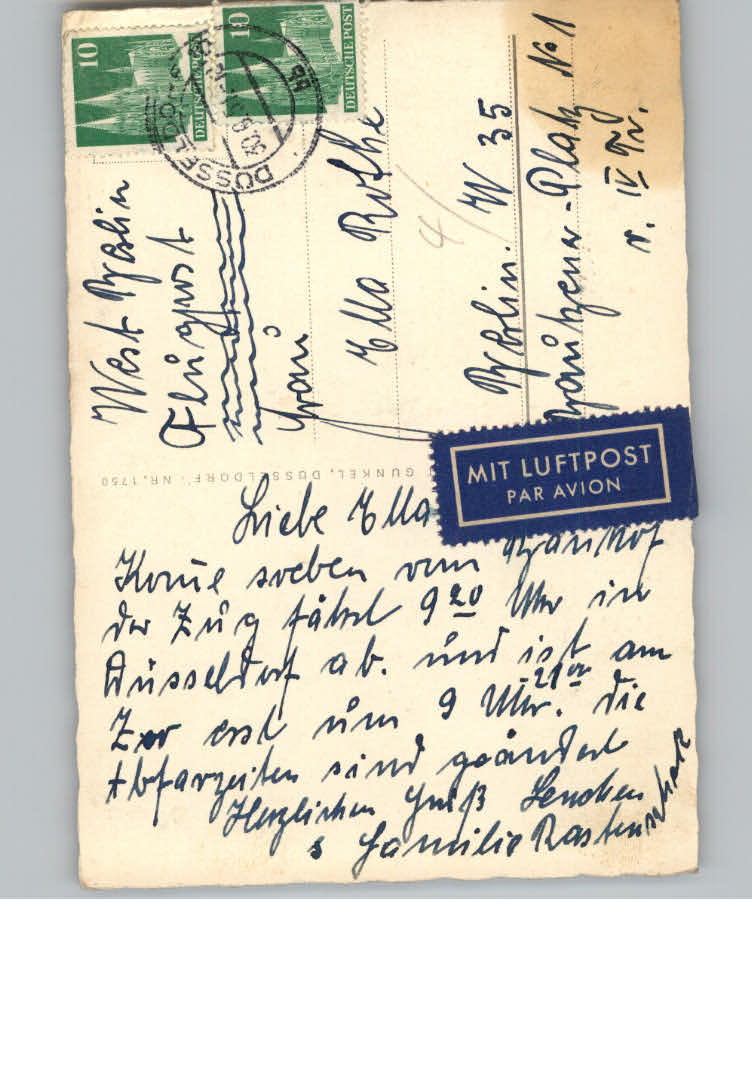 10
DEUTSCHE POST
10
DEUTSCHE POST
DÜSSELDORF
West Berlin
Flugpost
Frau
Ella Rothe
Berlin. W 35
Platz No 1
v. IV Tr.
GUNKEL, DÜSSELDORF: NR. 1750
MIT LUFTPOST
PAR AVION
Liebe Ella
Kome soeben vom Bahnhof
der Zug fährt 9 20 Uhr in
Düsseldorf ab. und ist am
Zoo erst um 9 Uhr. 21 00 die
Abfarzeiten sind geändert
Herzlichen Gruß Lenchen
s Familie